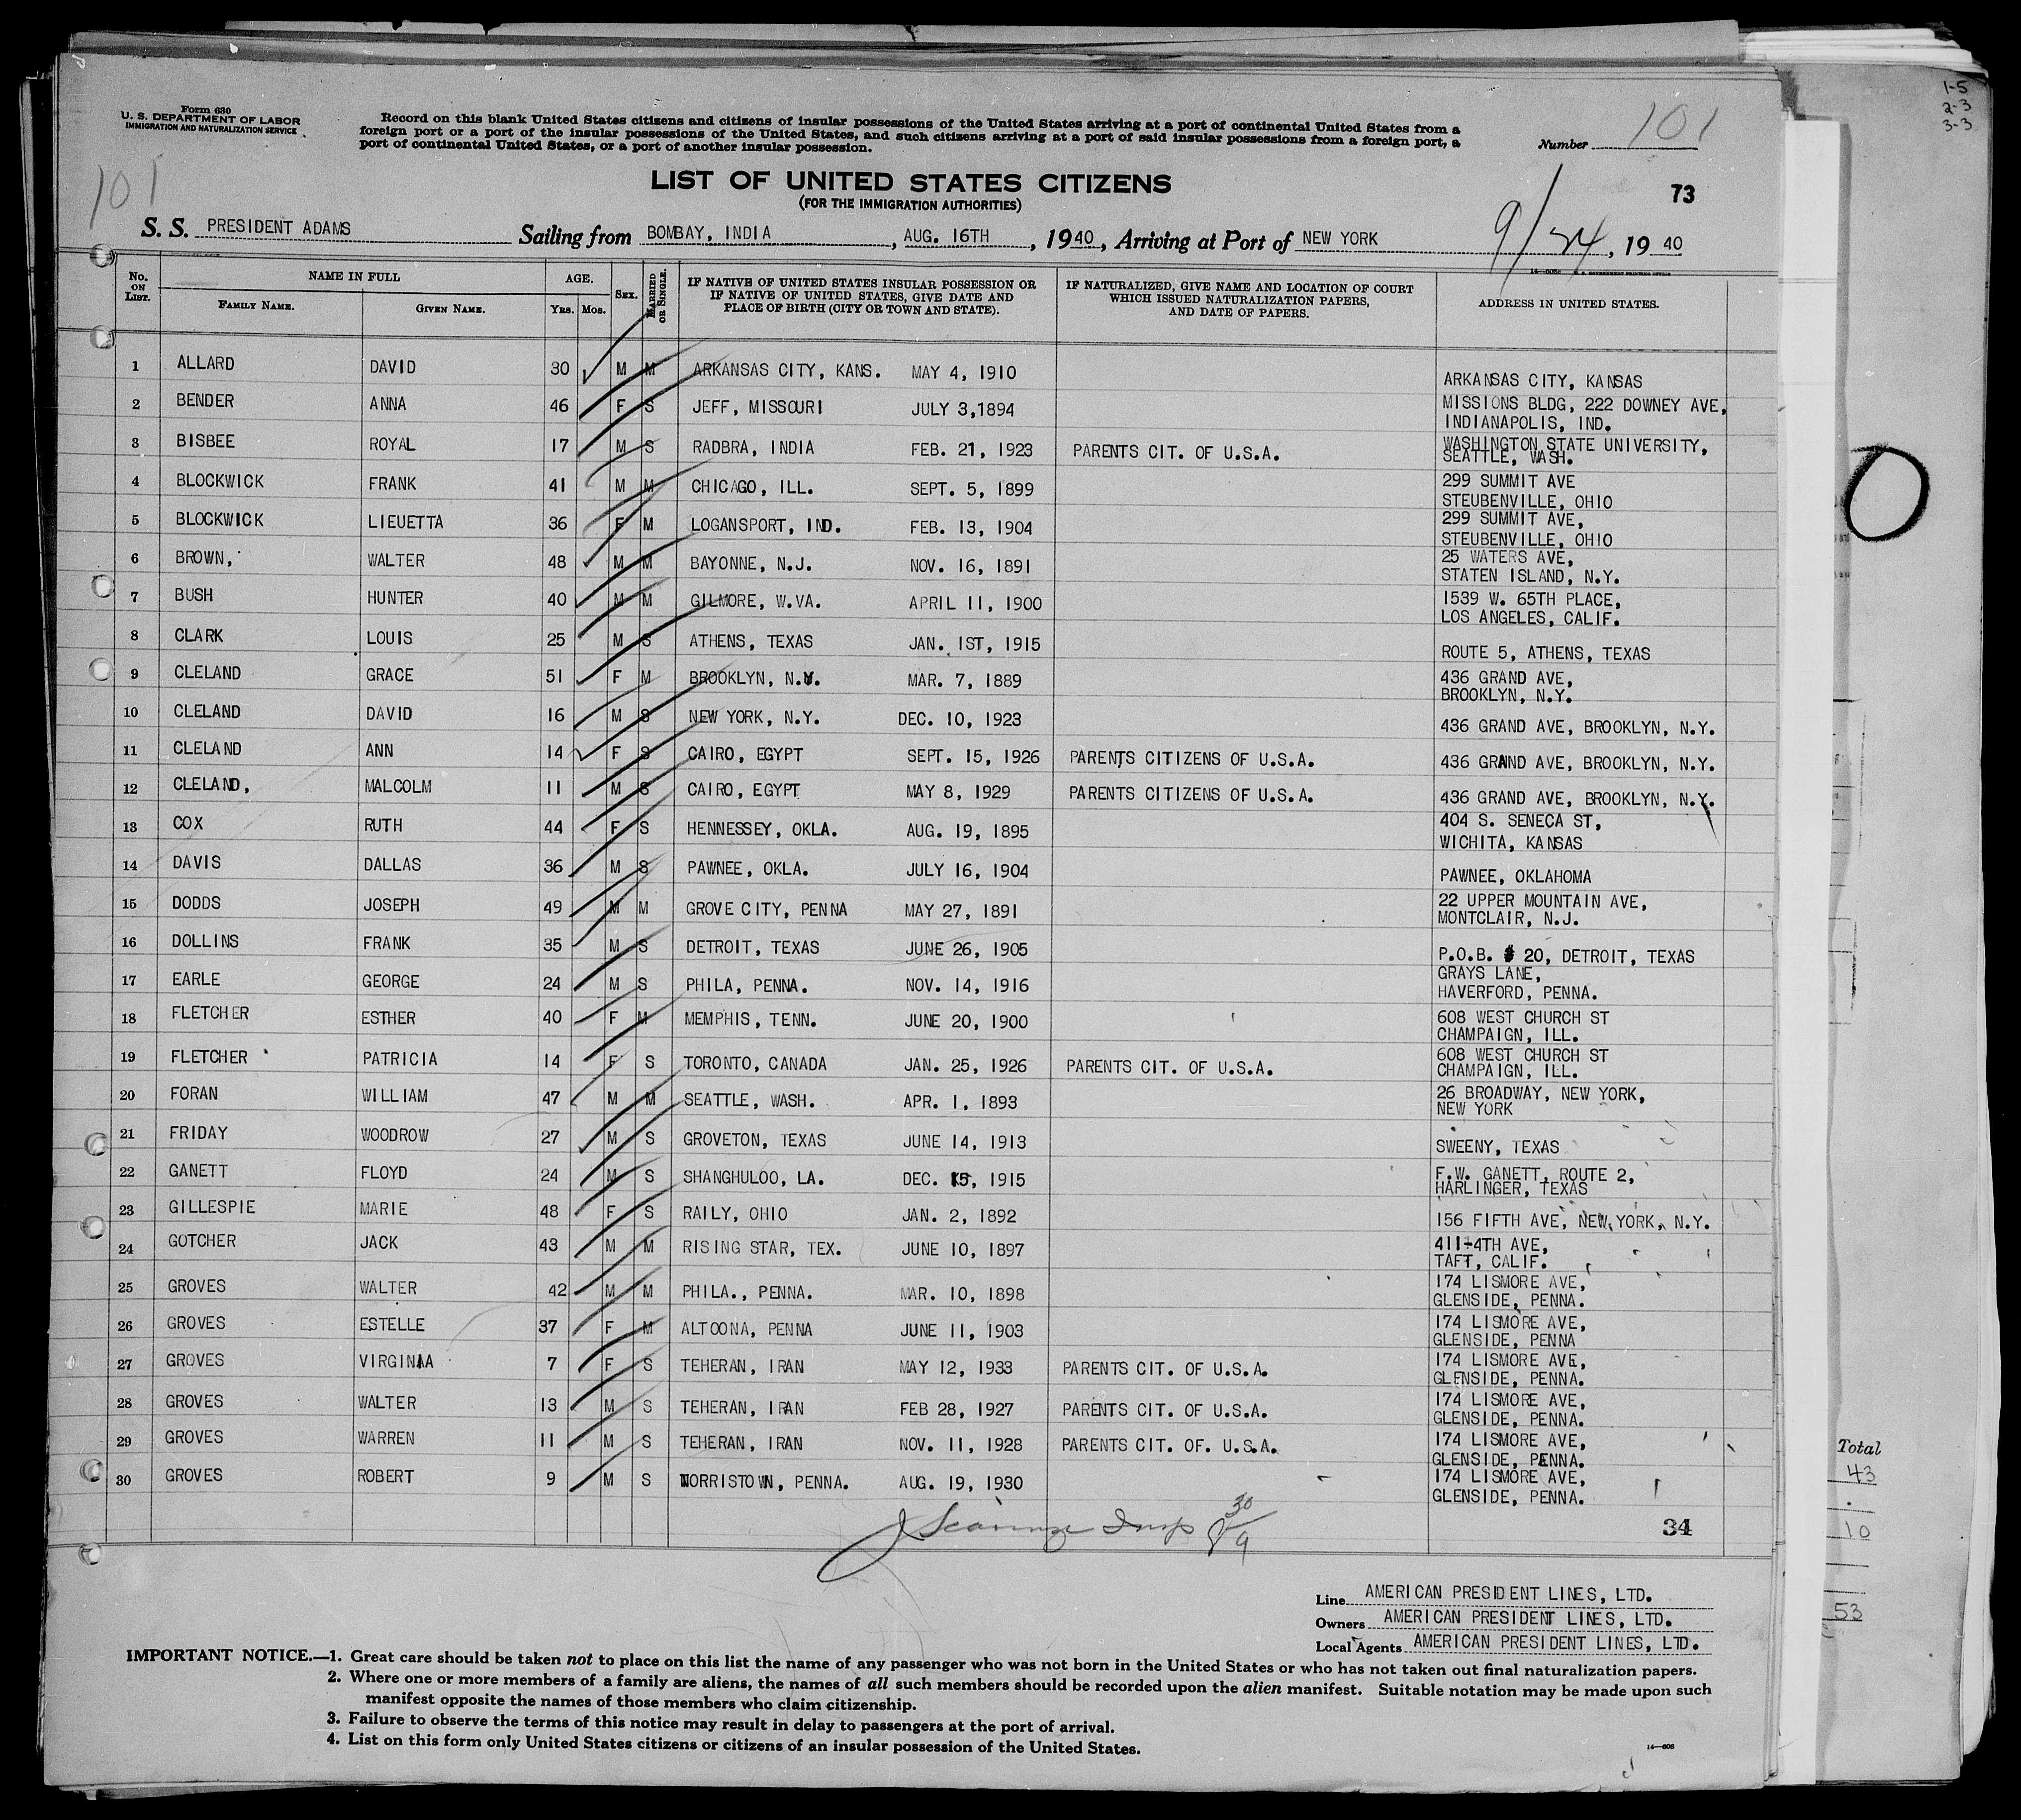 Form 630
U. S. DEPARTMENT OF LABOR
IMMIGRATION AND NATURALIZATION SERVICE
Record on this blank United States citizens and citizens of insular possessions of the United States arriving at a port of continental United States from a
foreign port or a port of the insular possessions of the United States, and such citizens arriving at a port of said insular possessions from a foreign port, a
port of continental United States, or a port of another insular possession.
Number 101
101
LIST OF UNITED STATES CITIZENS
(FOR THE IMMIGRATION AUTHORITIES)
73
S. S. PRESIDENT ADAMS Sailing from BOMBAY, INDIA, AUG. 16TH, 1940, Arriving at Port of NEW YORK 9/24, 1940
No. ON LIST. NAME IN FULL FAMILY NAME. GIVEN NAME. AGE. Yrs. Mos. SEX. MARRIED OR SINGLE. IF NATIVE OF UNITED STATES INSULAR POSSESSION OR IF NATIVE OF UNITED STATES, GIVE DATE AND PLACE OF BIRTH (CITY OR TOWN AND STATE). IF NATURALIZED, GIVE NAME AND LOCATION OF COURT WHICH ISSUED NATURALIZATION PAPERS, AND DATE OF PAPERS. ADDRESS IN UNITED STATES.
1 ALLARD DAVID 30 M M ARKANSAS CITY, KANS. MAY 4, 1910 ARKANSAS CITY, KANSAS
2 BENDER ANNA 46 F S JEFF, MISSOURI JULY 3,1894 MISSIONS BLDG, 222 DOWNEY AVE, INDIANAPOLIS, IND.
3 BISBEE ROYAL 17 M S RADBRA, INDIA FEB. 21, 1923 PARENTS CIT. OF U.S.A. WASHINGTON STATE UNIVERSITY, SEATTLE, WASH.
4 BLOCKWICK FRANK 41 M M CHICAGO, ILL. SEPT. 5, 1899 299 SUMMIT AVE STEUBENVILLE, OHIO
5 BLOCKWICK LIEUETTA 36 F M LOGANSPORT, IND. FEB. 13, 1904 299 SUMMIT AVE, STEUBENVILLE, OHIO
6 BROWN, WALTER 48 M M BAYONNE, N.J. NOV. 16, 1891 25 WATERS AVE, STATEN ISLAND, N.Y.
7 BUSH HUNTER 40 M M GILMORE, W.VA. APRIL 11, 1900 1539 W. 65TH PLACE, LOS ANGELES, CALIF.
8 CLARK LOUIS 25 M S ATHENS, TEXAS JAN. 1ST, 1915 ROUTE 5, ATHENS, TEXAS
9 CLELAND GRACE 51 F M BROOKLYN, N.Y. MAR. 7, 1889 436 GRAND AVE, BROOKLYN, N.Y.
10 CLELAND DAVID 16 M S NEW YORK, N.Y. DEC. 10, 1923 436 GRAND AVE, BROOKLYN, N.Y.
11 CLELAND ANN 14 F S CAIRO, EGYPT SEPT. 15, 1926 PARENTS CITIZENS OF U.S.A. 436 GRAND AVE, BROOKLYN, N.Y.
12 CLELAND, MALCOLM 11 M S CAIRO, EGYPT MAY 8, 1929 PARENTS CITIZENS OF U.S.A. 436 GRAND AVE, BROOKLYN, N.Y.
13 COX RUTH 44 F S HENNESSEY, OKLA. AUG. 19, 1895 404 S. SENECA ST, WICHITA, KANSAS
14 DAVIS DALLAS 36 M S PAWNEE, OKLA. JULY 16, 1904 PAWNEE, OKLAHOMA
15 DODDS JOSEPH 49 M M GROVE CITY, PENNA MAY 27, 1891 22 UPPER MOUNTAIN AVE, MONTCLAIR, N.J.
16 DOLLINS FRANK 35 M S DETROIT, TEXAS JUNE 26, 1905 P.O.B. # 20, DETROIT, TEXAS
17 EARLE GEORGE 24 M S PHILA, PENNA. NOV. 14, 1916 GRAYS LANE, HAVERFORD, PENNA.
18 FLETCHER ESTHER 40 F M MEMPHIS, TENN. JUNE 20, 1900 608 WEST CHURCH ST CHAMPAIGN, ILL.
19 FLETCHER PATRICIA 14 F S TORONTO, CANADA JAN. 25, 1926 PARENTS CIT. OF U.S.A. 608 WEST CHURCH ST CHAMPAIGN, ILL.
20 FORAN WILLIAM 47 M M SEATTLE, WASH. APR. 1, 1893 26 BROADWAY, NEW YORK, NEW YORK
21 FRIDAY WOODROW 27 M S GROVETON, TEXAS JUNE 14, 1913 SWEENY, TEXAS
22 GANETT FLOYD 24 M S SHANGHULOO, LA. DEC. 15, 1915 F.W. GANETT, ROUTE 2, HARLINGER, TEXAS
23 GILLESPIE MARIE 48 F S RAILY, OHIO JAN. 2, 1892 156 FIFTH AVE, NEW YORK, N.Y.
24 GOTCHER JACK 43 M M RISING STAR, TEX. JUNE 10, 1897 411-4TH AVE, TAFT, CALIF.
25 GROVES WALTER 42 M M PHILA., PENNA. MAR. 10, 1898 174 LISMORE AVE, GLENSIDE, PENNA.
26 GROVES ESTELLE 37 F M ALTOONA, PENNA JUNE 11, 1903 174 LISMORE AVE, GLENSIDE, PENNA
27 GROVES VIRGINIA 7 F S TEHERAN, IRAN MAY 12, 1933 PARENTS CIT. OF U.S.A. 174 LISMORE AVE, GLENSIDE, PENNA.
28 GROVES WALTER 13 M S TEHERAN, IRAN FEB 28, 1927 PARENTS CIT. OF U.S.A. 174 LISMORE AVE, GLENSIDE, PENNA.
29 GROVES WARREN 11 M S TEHERAN, IRAN NOV. 11, 1928 PARENTS CIT. OF. U.S.A. 174 LISMORE AVE, GLENSIDE, PENNA.
30 GROVES ROBERT 9 M S NORRISTOWN, PENNA. AUG. 19, 1930 174 LISMORE AVE, GLENSIDE, PENNA.
34
Line AMERICAN PRESIDENT LINES, LTD.
Owners AMERICAN PRESIDENT LINES, LTD.
Local Agents AMERICAN PRESIDENT LINES, LTD.
IMPORTANT NOTICE.—1. Great care should be taken not to place on this list the name of any passenger who was not born in the United States or who has not taken out final naturalization papers.
2. Where one or more members of a family are aliens, the names of all such members should be recorded upon the alien manifest. Suitable notation may be made upon such
manifest opposite the names of those members who claim citizenship.
3. Failure to observe the terms of this notice may result in delay to passengers at the port of arrival.
4. List on this form only United States citizens or citizens of an insular possession of the United States.
14—606
1-5
2-3
3-3
Total
43
10
53